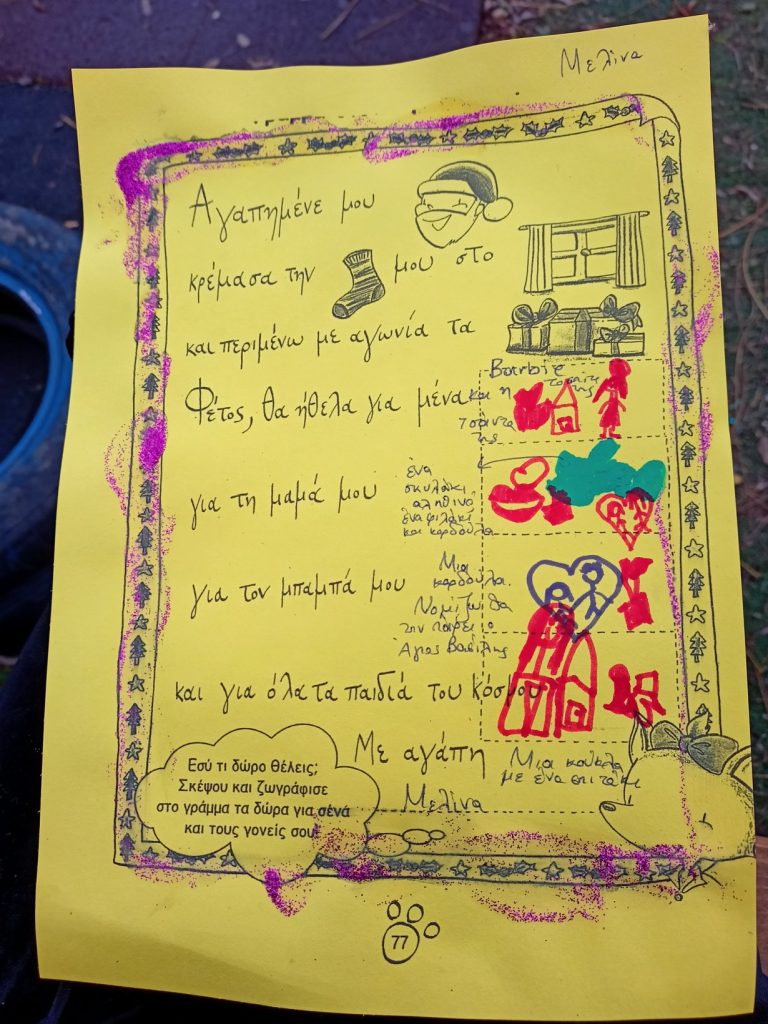 Μελίνα
Αγαπημένε μου
κρέμασα την μου στο
και περιμένω με αγωνία τα
Barbie
Φέτος, θα ήθελα για μένα και η
τσαντα
της
για τη μαμά μου
ένα
σκυλάκι
αληθινό
ένα φιλάκι
και καρδούλα
για τον μπαμπά μου
Μια
καρδούλα.
Νομίζω θα
την πάρει ο
Άγιος Βασίλης
και για όλα τα παιδιά του κόσμου
Με αγάπη
Μια κούκλα
με ενα σπιτάκι
Μελίνα
Εσύ τι δώρο θέλεις;
Σκέψου και ζωγράφισε
στο γράμμα τα δώρα για σένα
και τους γονείς σου!
77